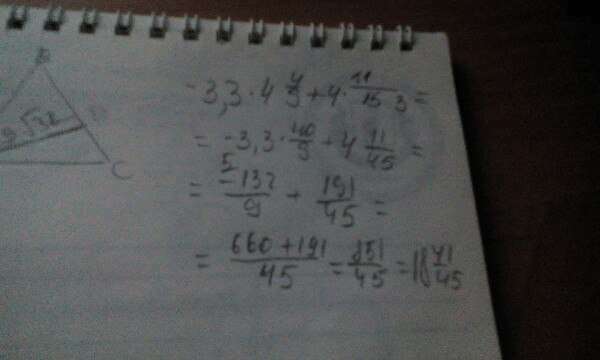 B
9√22
C
-3,3 · 4 4/9 + 4 · 11/15 3 =
= -3,3 · 40/9 + 4 11/45 =
= -132/9 + 191/45 =
5
= 660 + 191/45 = 851/45 = 18 41/45